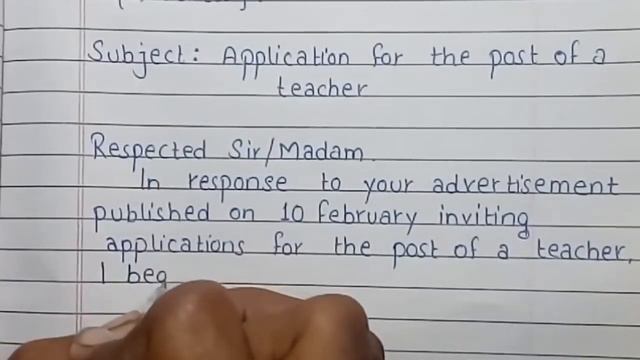 Subject: Application for the post of a
teacher
Respected Sir/Madam
In response to your advertisement
published on 10 february inviting
applications for the post of a teacher,
I beg